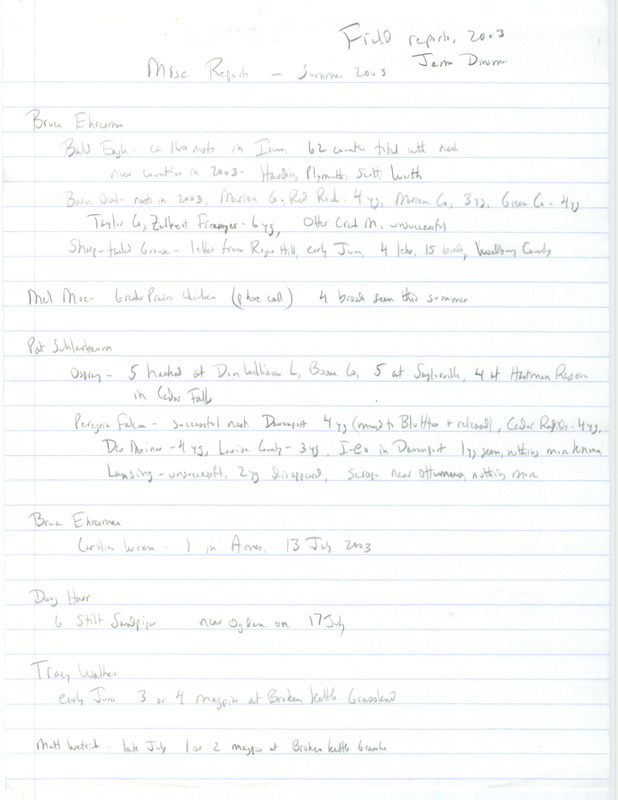 Field reports, 2003
Misc Reports - Summer 2003
Bruce Ehresman
Bald Eagle - ca 160 nests in Iowa, 62 counties total with nest
new counties in 2003 - Hardin, Plymouth, Scott, Worth
Barn Owl - nests in 2003, Marion Co, Red Rock - 4 yg, Marion Co, 3 yg, Green Co - 4 yg
Taylor Co, - 6 yg, Otter Creek M, unsuccessful
Sharp-tailed Grouse - letter from Roger Hill, early Jun, 4 leks, 15 birds, Woodbury County
Mel Moe - Greater Prairie Chicken (phone call) 4 broods seen this summer
Pat Schlarbaum
Osprey - 5 hacked at Don Williams L, Boone Co, 5 at Saylorville, 4 at Hartman Reserve
in Cedar Falls
Peregrine Falcon - successful nests Davenport 4 yg (moved to Blufftop + released), Cedar Rapids - 4 yg,
Des Moines - 4 yg, Louisa County - 3 yg, I-80 in Davenport 1 yg seen, nothing more known
Lansing - unsuccessful, 2 yg disappeared, scrape near Ottumwa, nothing more
Bruce Ehresman
Carolina Wren - 1 in Ames, 13 July 2003
Doug Harr
6 Stilt Sandpiper near Ogden on 17 July
Tracy
early June 3 or 4 magpies at Broken Kettle Grassland
Matt Wetrich - late July 1 or 2 magpie at Broken Kettle Grasslands